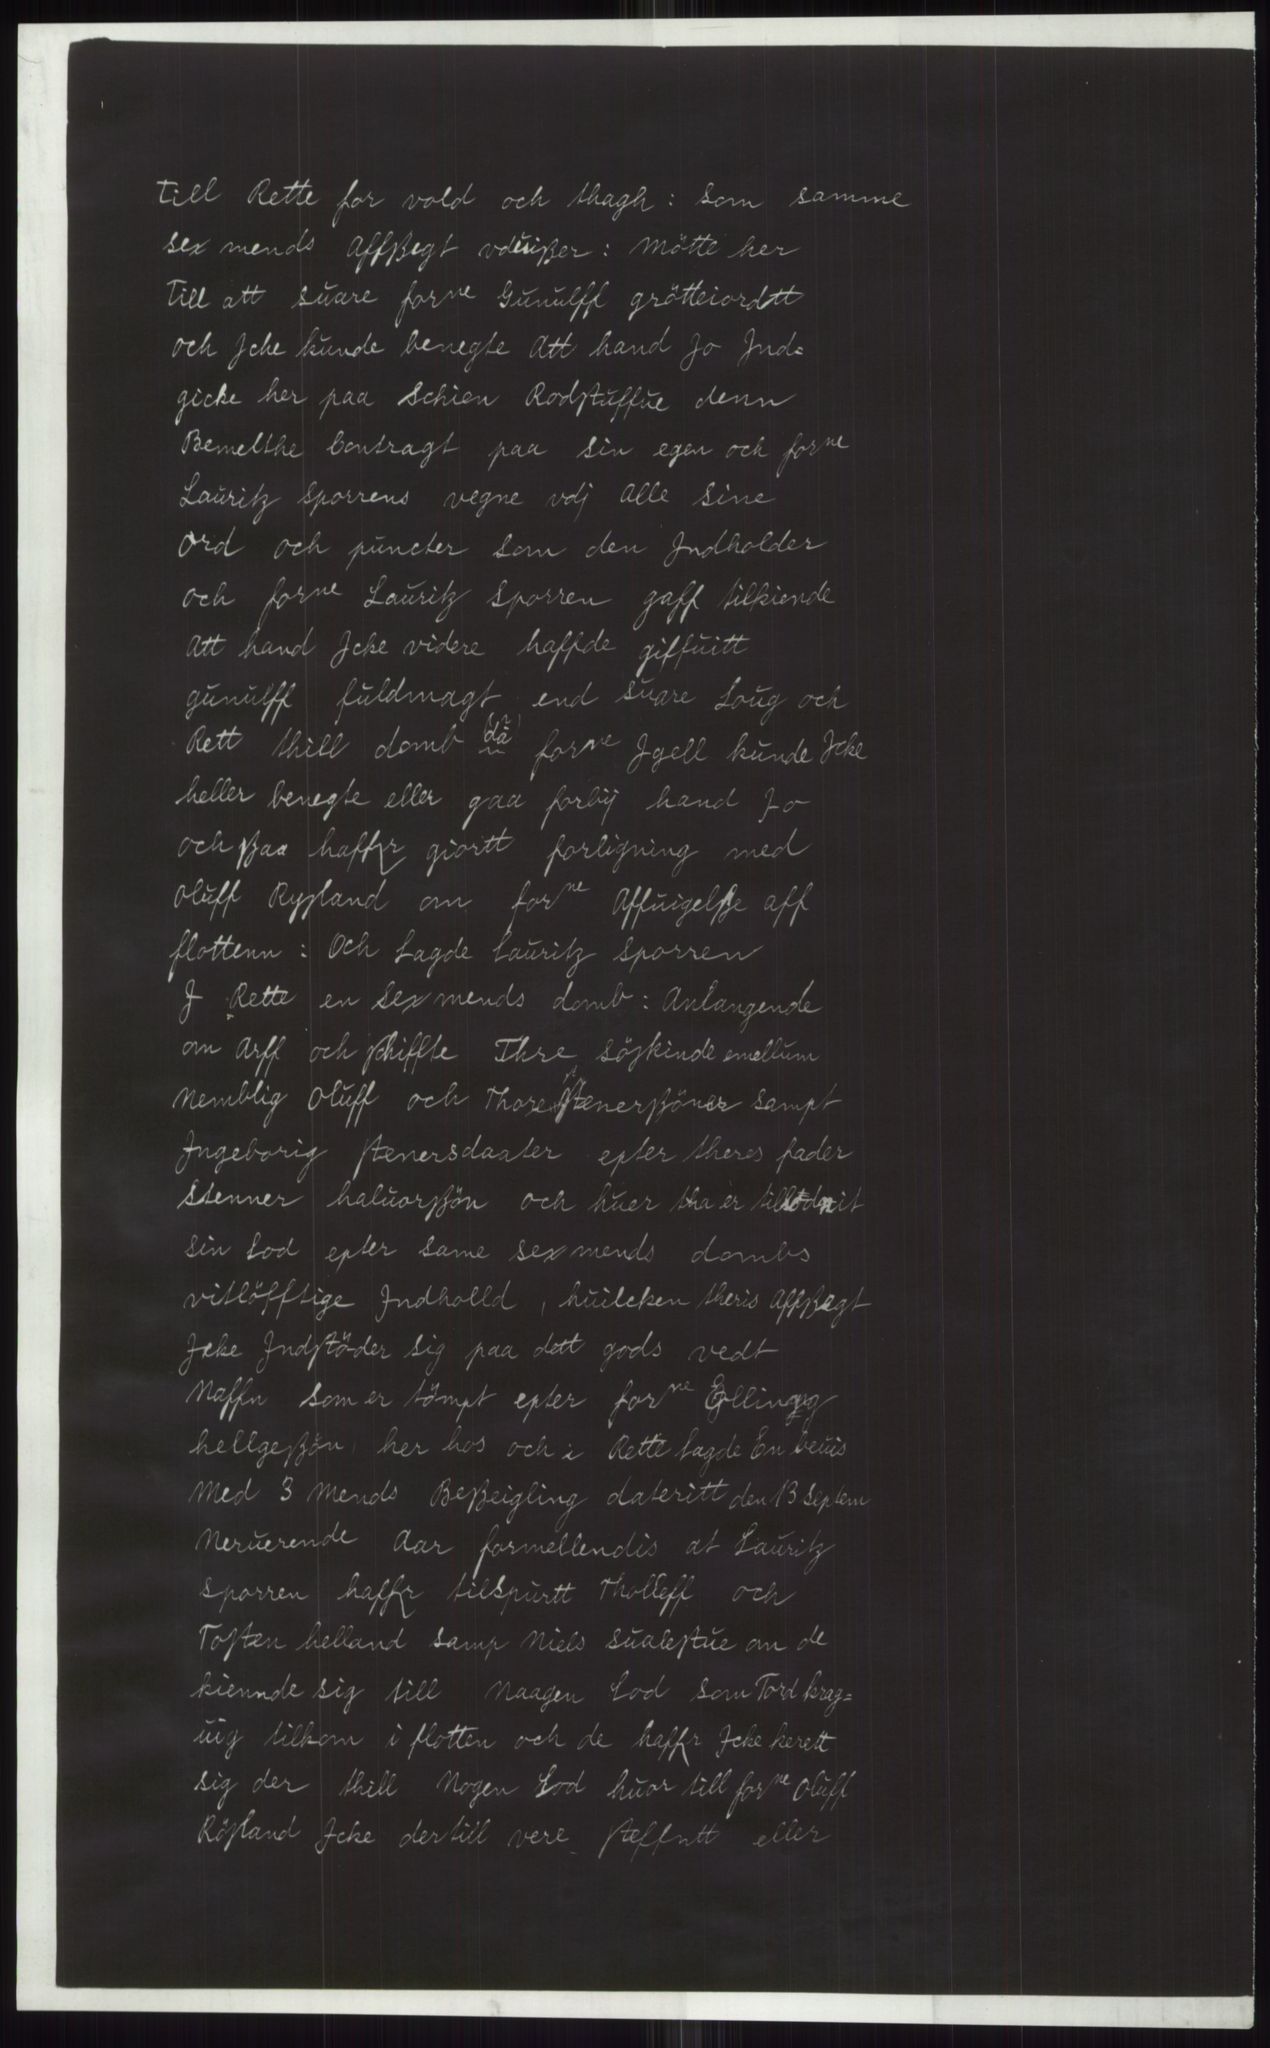 till Rette for vold och thagh: som samme
sex mends Affßegt vduißer: Mötte her
till att suare forne Gunulff grötteiordtt
och Jcke kunde benegte Att hand Jo Jnd=
gicke her paa Schien Rodstuffue denn
Bemelthe Contragt paa sin egen och forne
Lauritz Sporrens vegne vdj Alle Sine
Ord och puncter som den Jndholder
och forne Lauritz Sporren gaff tilkiende
Att hand Jcke videre haffde giffuitt
gunulff fuldmagt end suare Loug och
Rett thill domb då forne Jgell kunde Jcke
heller benegte eller gaa forbij hand Jo
och ßaa haffr giortt forligning med
Oluff Rysland om forne Affuigelße aff
flottenn: Och Lagde Lauritz Sporren
J Rette en Sex mends domb: Anlangende
om Arff och schiffte Thre söskinde emellum
Nemblig Oluff och Thore Stenerßöner sampt
Jngeborig stenersdaater epter theres fader
Stenner haluorßön och huer tha er
sin Lod epter Same sex mends dombs
vitlöfftige Jndholld, huilcken theris Affßagt
Jcke Jndstöder sig paa dett gods vedt
Naffn som er tömpt epter forne Elling
hellgeßön, her hos och i Rette Lagde En beuis
med 3 Mends Beßeigling dateritt den 13 Septem
Neruerende Aar formellendis at Lauritz
Sporren haffr tilspurtt Tholleff och
Tosten helland samp Niels sualestue om de
kiennde sig till Naagen Lod som Tord krag=
uig tilkom i flotten och de haffr Jcke kerett
sig der thill Nogen Lod huor till forne Oluff
Rösland Jcke dertill vere steffntt eller